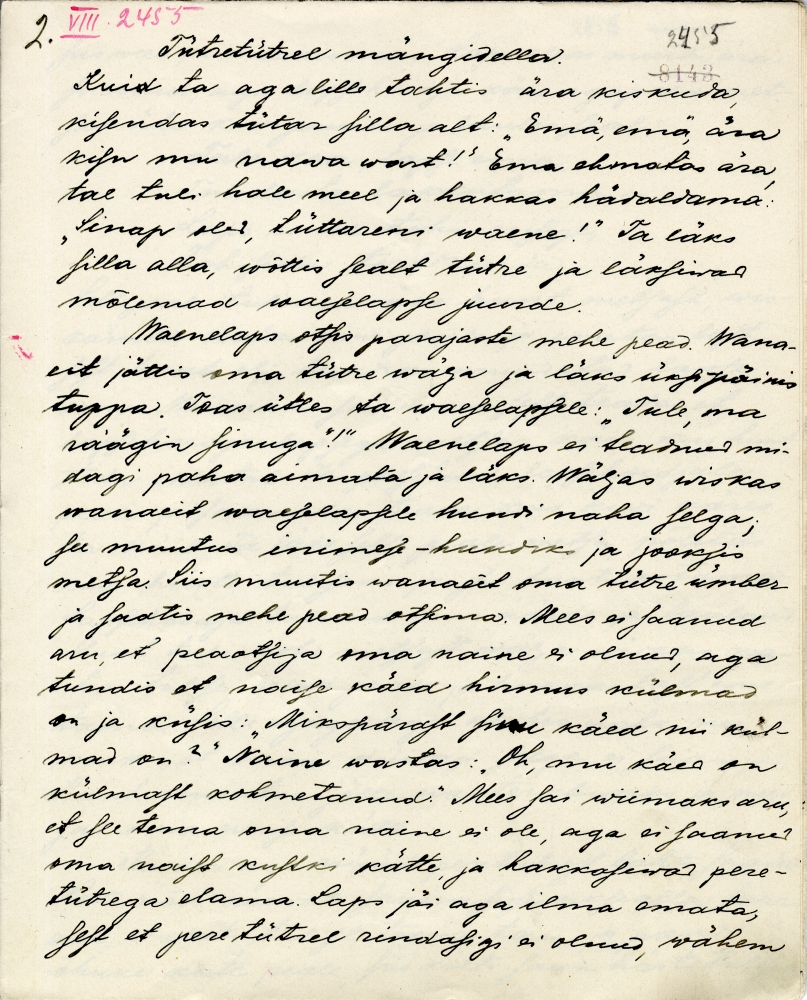 2. VIII. 2455
2455
8143
Tütretütrel mängidella.
Kuid ta aga lille tahtis ära kiskuda,
kisendas tütar silla alt: „Emä, emä, ära
kisu mu nawa wart!" Ema ehmatas ära,
tal tuli hale meel ja hakkas hädaldama:
„Sinap oled, tüttareni waene!" Ta läks
silla alla, wõttis sealt tütre ja läksiwad
mõlemad waeselapse juurde.
Waenelaps otsis parajaste mehe pead. Wana-
eit jättis oma tütre wälja ja läks üksipäinis
tuppa. Toas ütles ta waeselapsele: „Tule, ma
räägin sinuga"!" Waenelaps ei teadnud mi-
dagi paha aimata ja läks. Wäljas wiskas
wanaeit waeselapsele hundi naha selga;
see muutus inimese-hundiks ja jooksis
metsa. Siis muutis wanaeit oma tütre ümber
ja saatis mehe pead otsima. Mees ei saanud
aru, et peaotsija oma naine ei olnud, aga
tundis et naise käed hirmus külmad
on ja küsis: „Mikspärast sinu käed nii kül-
mad on?" Naine wastas: „Oh, mu käed on
külmast kohmetanud." Mees sai wiimaks aru,
et see tema oma naine ei ole, aga ei saanud
oma naist kustki kätte, ja hakkasiwad pere-
tütrega elama. Laps jäi aga ilma emata,
sest et peretütrel rindasigi ei olnud, wähem